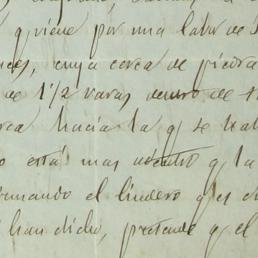 y viene por una labor de
cuya cerca de piedra
de 1/2 varas dentro de
hacia la q se
está mas adentro q la
formando el lindero q es
han dicho, pretende q el